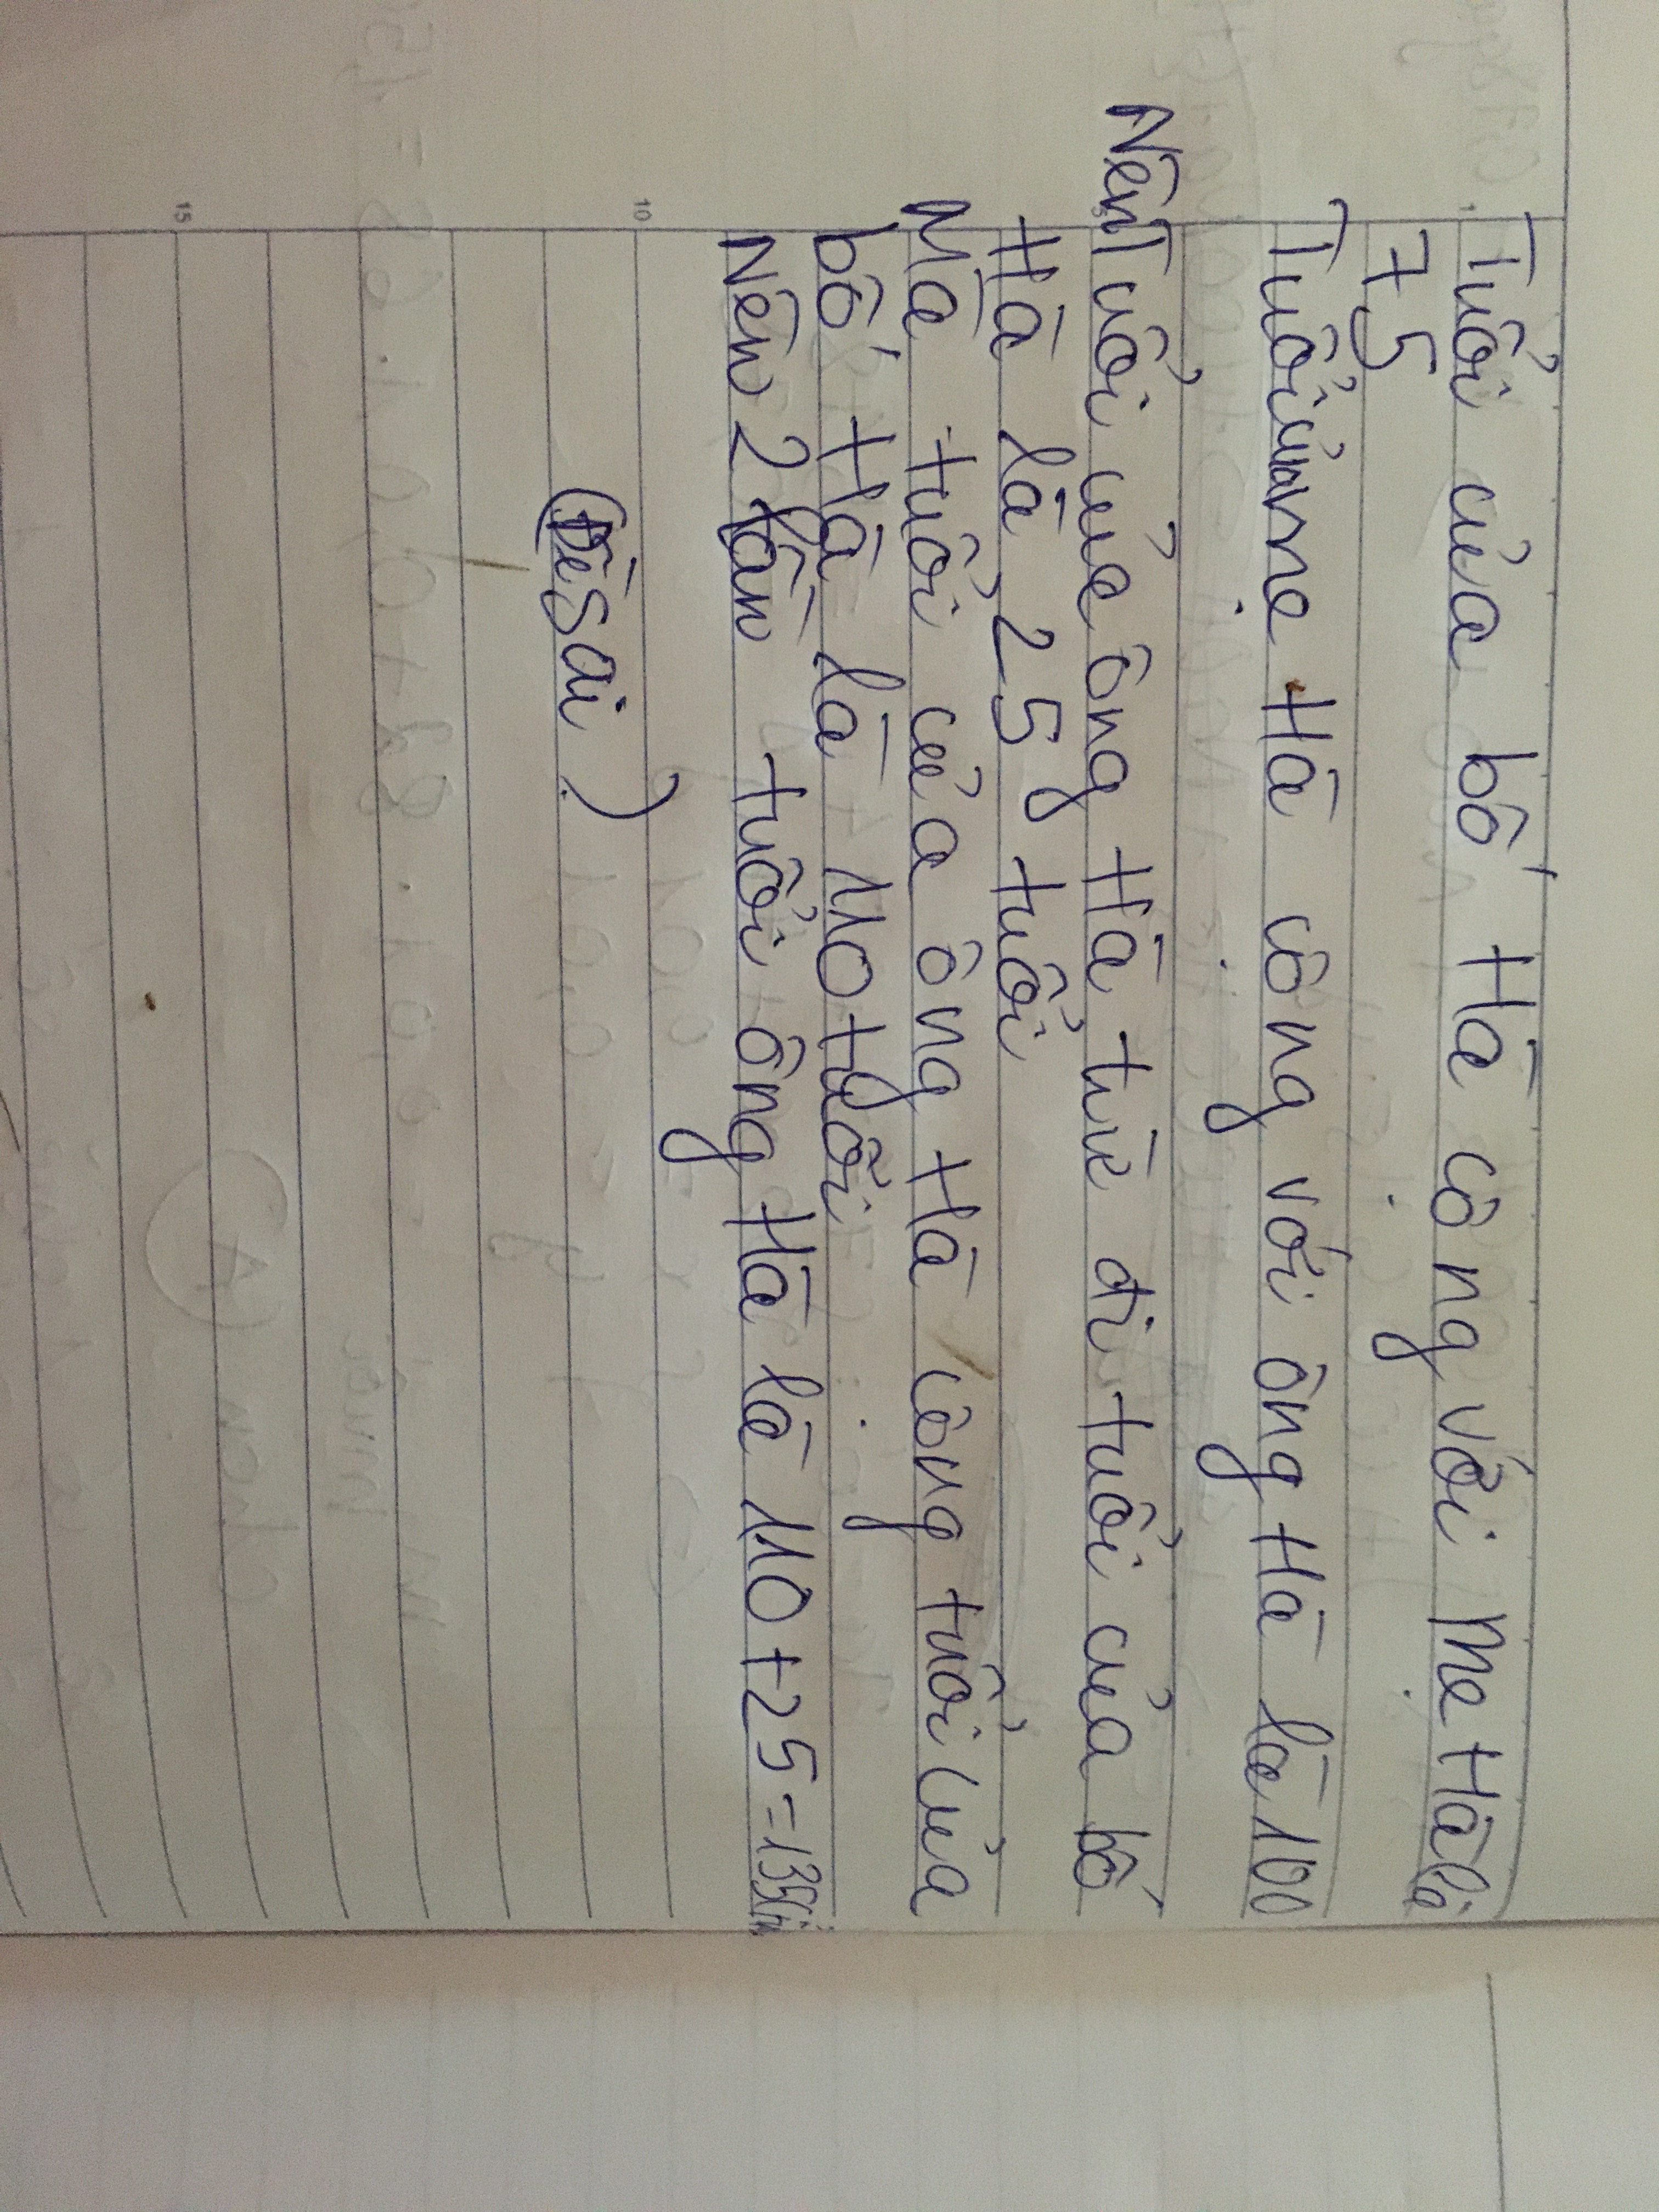 Tuổi của bố Hà cộng với mẹ Hà là
75
Tuổi của mẹ Hà cộng với ông Hà là 100
Nên Tuổi của ông Hà trừ đi tuổi của bố
Hà là 25 tuổi
Mà tuổi của ông Hà cộng tuổi của
bố Hà là 110 tuổi
Nên 2 lần tuổi ông Hà là 110 + 25 = 135
(Đề sai)
1
5
10
15